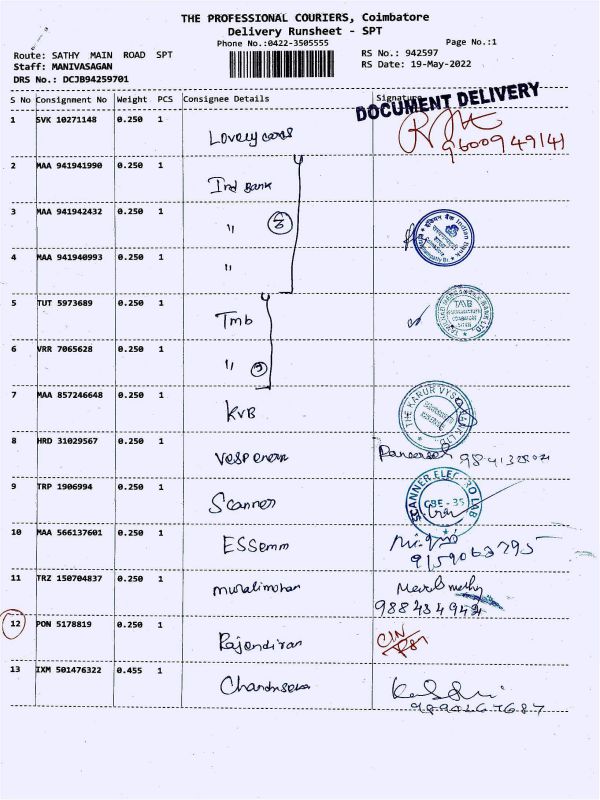 THE PROFESSIONAL COURIERS, Coimbatore
Delivery Runsheet - SPT
Phone No.:0422-3505555
Page No.:1
Route: SATHY MAIN ROAD SPT
RS No.: 942597
Staff: MANIVASAGAN
RS Date: 19-May-2022
DRS No.: DCJB94259701
S No Consignment No Weight PCS Consignee Details Signature
DOCUMENT DELIVERY
1 SVK 10271148 0.250 1 Lovely cards
9600949141
2 MAA 941941990 0.250 1 Ind Bank
3 MAA 941942432 0.250 1 "
4 MAA 941940993 0.250 1 "
5 TUT 5973689 0.250 1 Tmb
TMB
6 VRR 7065628 0.250 1 "
7 MAA 857246648 0.250 1 KVB
THE KARUR VYSYA BANK LTD.
8 HRD 31029567 0.250 1 Vesp
9 TRP 1906994 0.250 1 Scanner
SCANNER ELECTRO LAB
CBE - 35
10 MAA 566137601 0.250 1 ESSemm
9159062795
11 TRZ 150704837 0.250 1 muralimohan
12 PON 5178819 0.250 1 Rajendiran
13 IXM 501476322 0.455 1